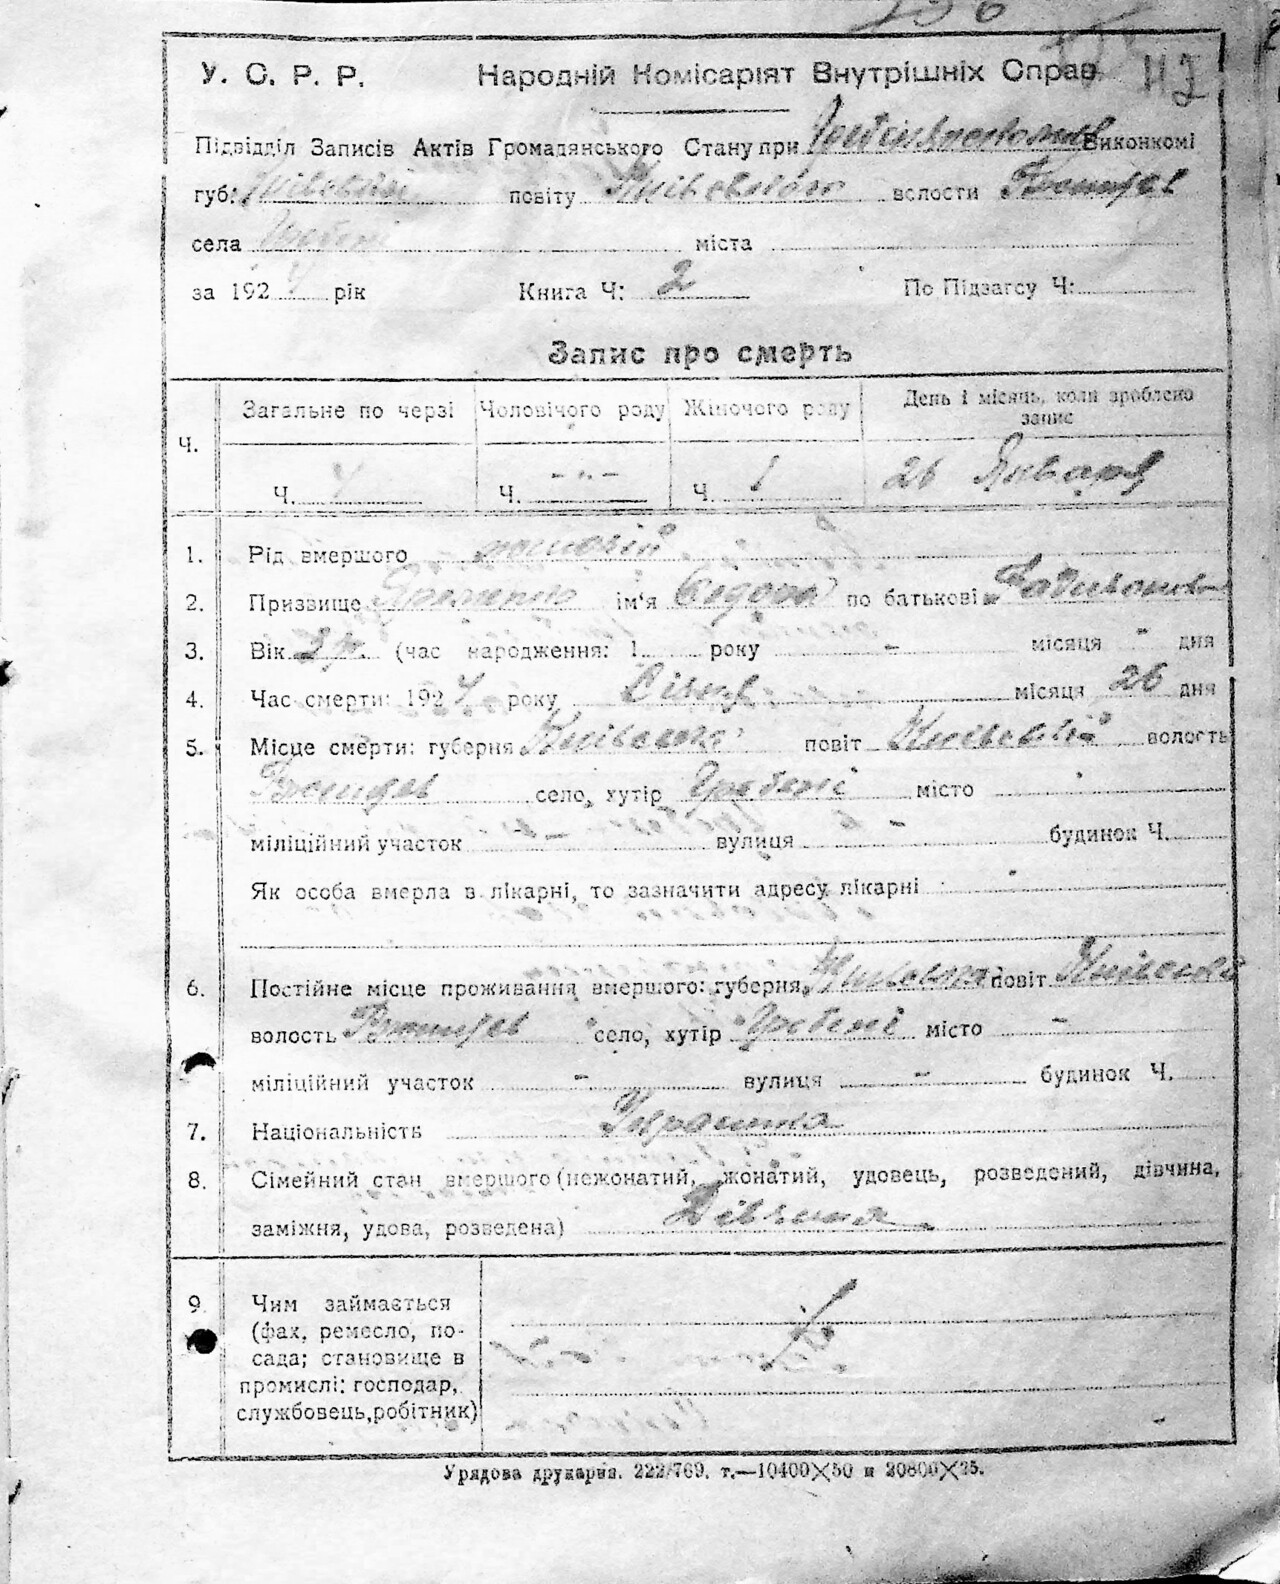 У. С. Р. Р. Народній Комісаріят Внутрішніх Справ
Підвідділ Записів Актів Громадянського Стану при Виконкомі
губ. повіту волости
села Гребені міста
за 192 рік Книга Ч: 2 По Підзагсу Ч:
Запис про смерть
Ч. Загальне по черзі Чоловічого роду Жіночого роду День і місяць, коли зроблено запис
Ч. Ч. - „ - Ч. 1 26 Января
1. Рід вмершого
2. Призвище ім'я по батькові
3. Вік 2 р. (час народження: 1 року - місяця - дня
4. Час смерти: 192 року Січня місяця 26 дня
5. Місце смерти: губерня Київська повіт Київський волость
село, хутір Гребені місто
міліційний участок - вулиця - будинок Ч.
Як особа вмерла в лікарні, то зазначити адресу лікарні
6. Постійне місце проживання вмершого: губерня Київська повіт Київський
волость село, хутір Гребені місто -
міліційний участок - вулиця - будинок Ч.
7. Національність Українка
8. Сімейний стан вмершого (нежонатий, жонатий, удовець, розведений, дівчина,
заміжня, удова, розведена) Дівчина
9. Чим займається
(фах, ремесло, по-
сада; становище в
промислі: господар,
службовець, робітник)
Урядова друкарня. 222/769. т.—10400×50 и 20800×25.